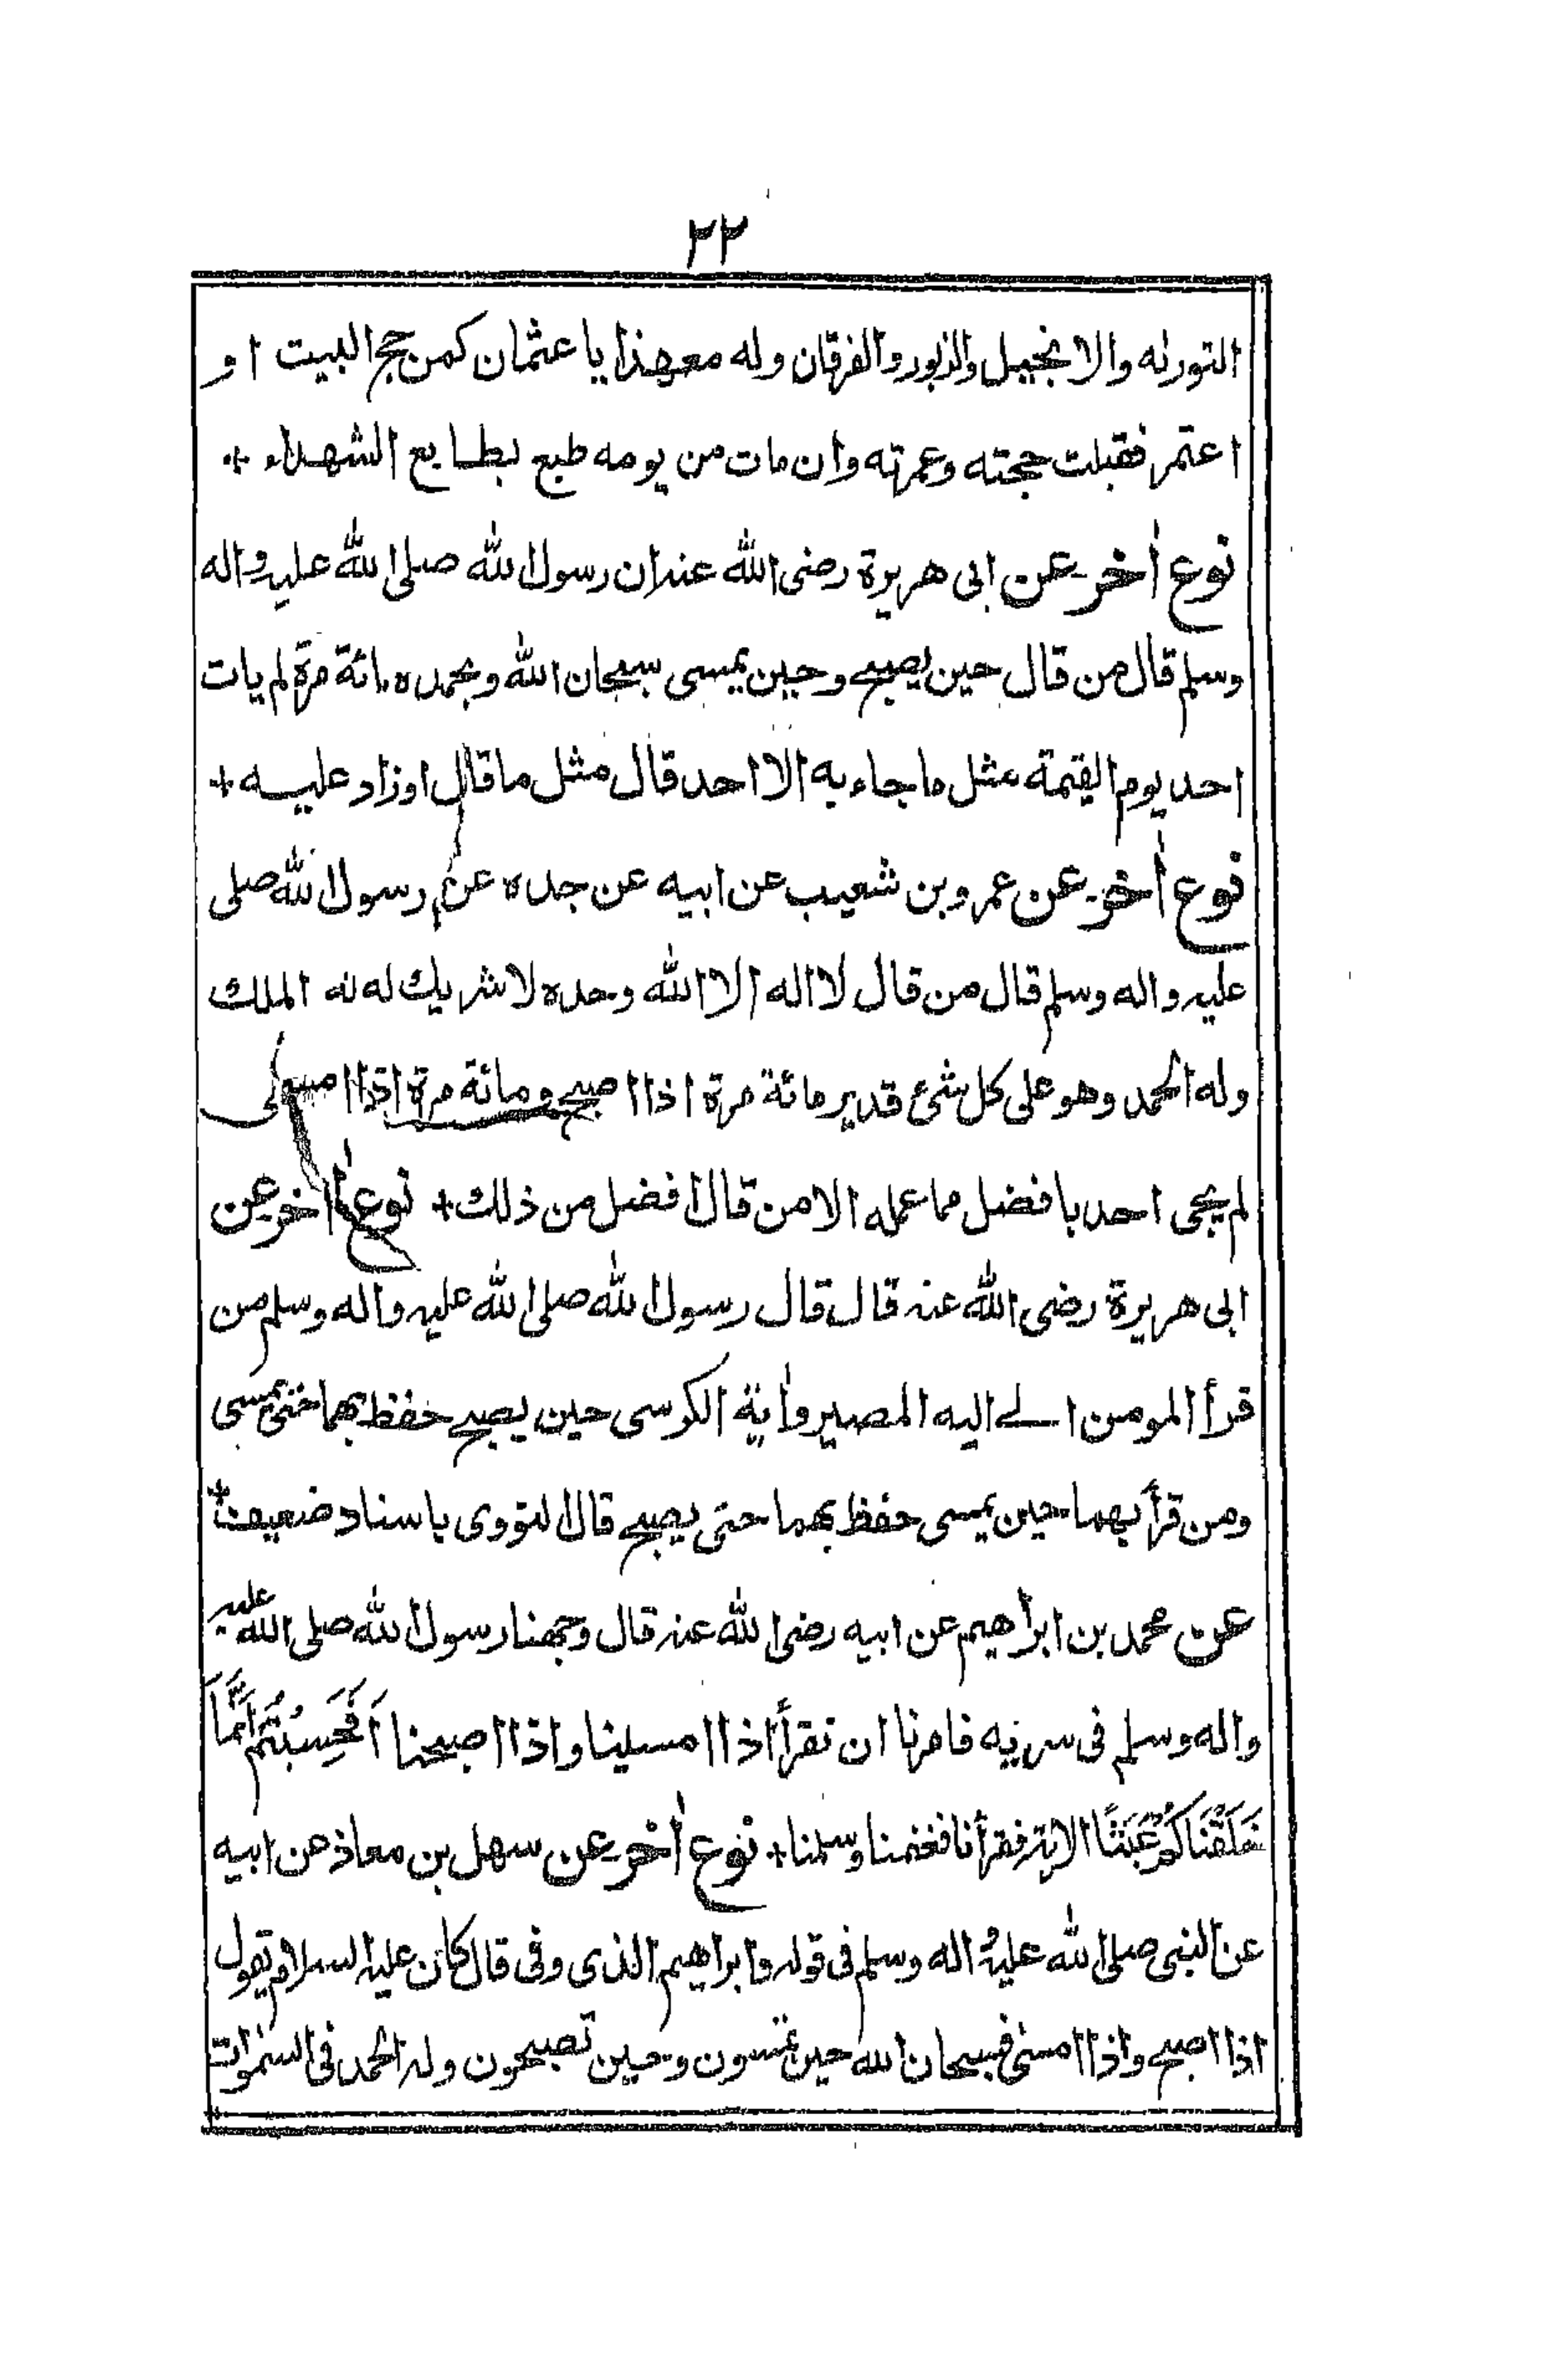 ٢٢
التورىه والانجيل والزبور والفرقان وله معهذا يا عثمان كمن حج البيت او
اعتمر فقبلت حجته وعمرته وان مات من يومه طبع بطابع الشهداء +
نوع اٰخر عن ابى هريرة رضى الله عنه ان رسول الله صلى الله عليه واله
وسلم قال من قال حين يصبح وحين يمسى سبحان الله وبحمده مائة مرة لم يات
احد يوم القيمة بمثل ما جاء به الا احد قال مثل ما قال او زاد عليه +
نوع اٰخر عن عمرو بن شعيب عن ابيه عن جده عن رسول الله صلى
عليه واله وسلم قال من قال لا اله الا الله وحده لا شريك له له الملك
وله الحمد وهو على كل شئ قدير مائة مرة اذا اصبح ومائة مرة اذا امسى
لم يجى احد بافضل مما عمله الا من قال افضل من ذلك + نوع اٰخر عن
ابى هريرة رضى الله عنه قال قال رسول الله صلى الله عليه واله وسلم من
قرأ المومن الے اليه المصير واٰية الكرسى حين يصبح حفظ بهما حتى يمسى
ومن قرأ بهما حين يمسى حفظ بهما حتى يصبح قال النووى باسناد ضعيف +
عن محمد بن ابراهيم عن ابيه رضى الله عنه قال وجهنا رسول الله صلى الله عليه
واله وسلم فى سريه فامرنا ان نقرأ اذا امسينا واذا اصبحنا اَفَحَسِبْتُمْ اَنَّمَا
خَلَقْنَاكُمْ عَبَثًا الاية فقرأنا فغنمنا وسلمنا + نوع اٰخر عن سهل بن معاذ عن ابيه
عن النبى صلى الله عليه واله وسلم فى قوله وابراهيم الذى وفى قال كان عليه السلام يقول
اذا اصبح واذا امسى فسبحان الله حين تمسون وحين تصبحون وله الحمد فى السمٰوات